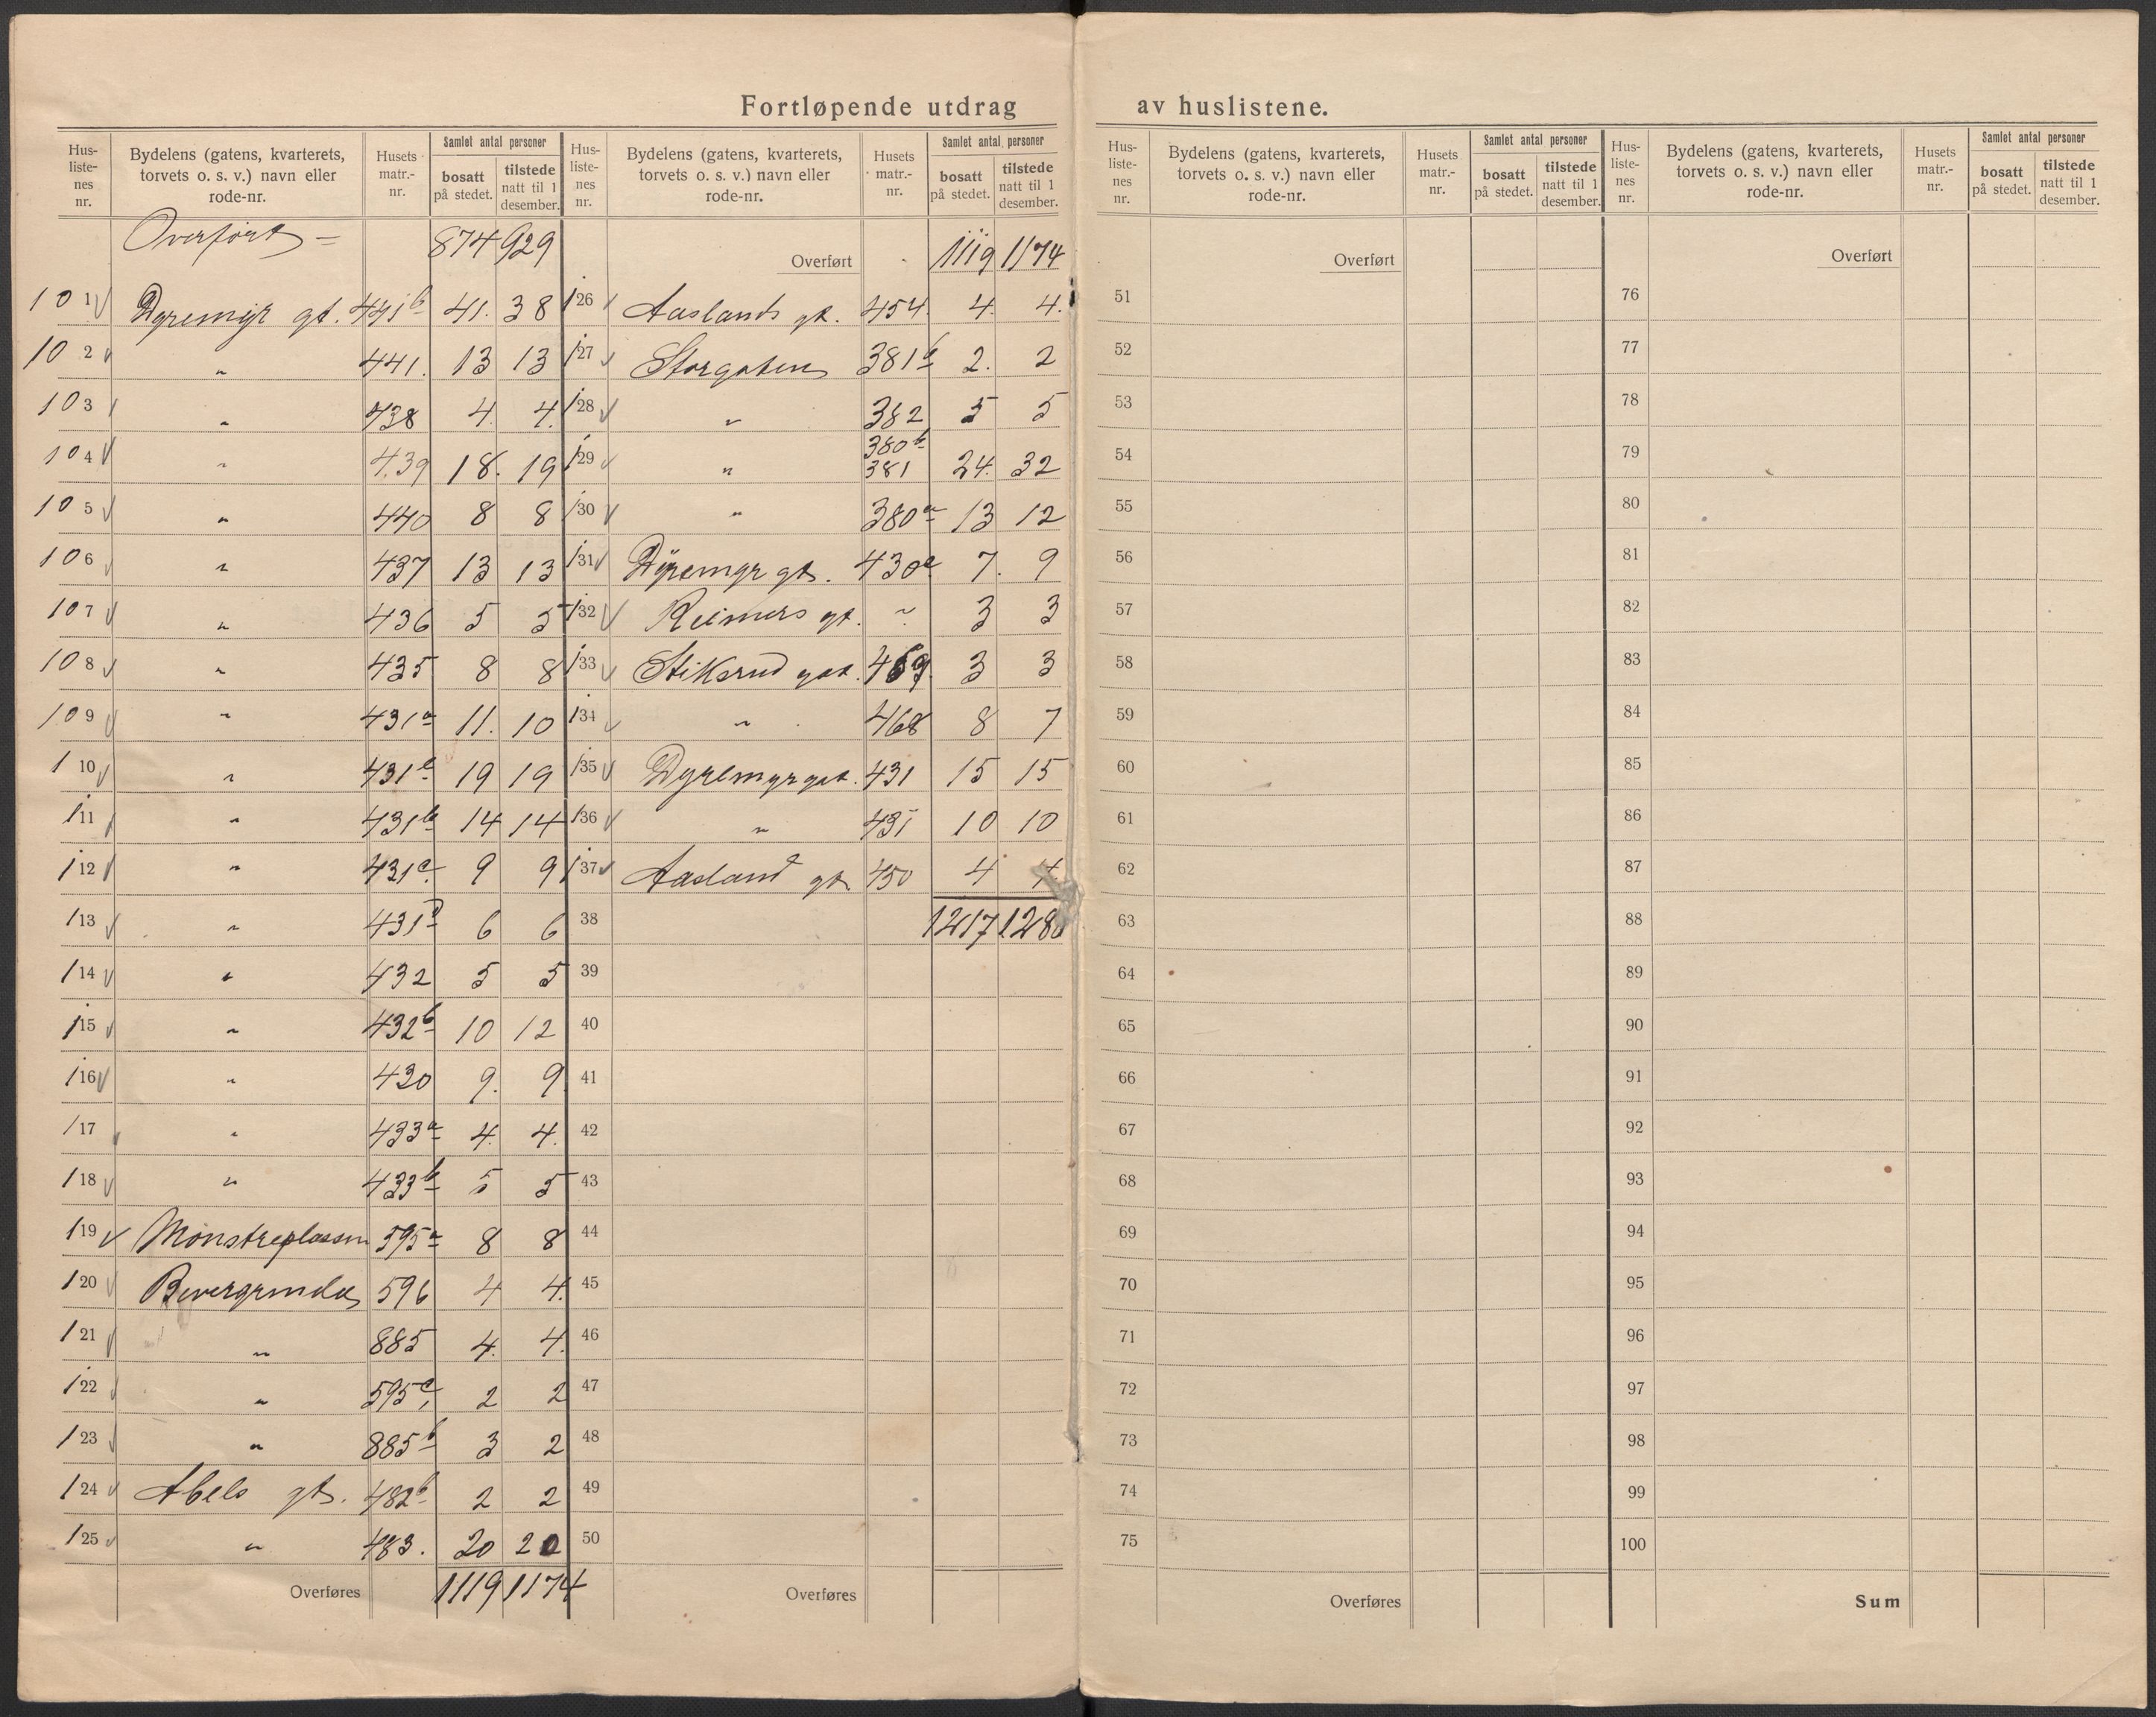 Fortløpende utdrag av huslistene.
Hus-liste-nes nr. | Bydelens (gatens, kvarterets, torvets o. s. v.) navn eller rode-nr. | Husets matr.-nr. | Samlet antal personer | bosatt på stedet. | tilstede natt til 1 desember.
Overført – 874 929
101 Dyremyr gt. 441b 41. 38
102 " 441. 13 13
103 " 438 4. 4.
104 " 439 18. 19
105 " 440 8 8
106 " 437 13 13
107 " 436 5 5
108 " 435 8 8
109 " 431a 11. 10
110 " 431b 19 19
111 " 431b 14 14
112 " 431c. 9 9
113 " 431d 6 6
114 " 432 5 5
115 " 432b 10 12
116 " 430 9. 9
117 " 433a 4. 4.
118 " 433b 5 5
119 Mønstreplassen 595a 8 8
120 Bevergrenda 596 4 4.
121 " 885 4. 4.
122 " 595c, 2 2
123 " 885b 3 2
124 Abels gt. 482b 2 2
125 " 483. 20 20
Overføres 1119 1174
Hus-liste-nes nr. | Bydelens (gatens, kvarterets, torvets o. s. v.) navn eller rode-nr. | Husets matr.-nr. | Samlet antal personer | bosatt på stedet. | tilstede natt til 1 desember.
Overført 1119 1174
126 Aaslands gt. 454. 4. 4.
127 Storgaten 381b 2. 2
128 " 382 5 5
129 " 380b 381 24. 32
130 " 380a 13 12
131 Dyremyr gt. 430a 7. 9
132 Reimers gt. " 3 3
133 Stiksrud gat. 469. 3 3
134 " 468 8 7
135 Dyremyr gat. 431 15 15
136 " 431 10 10
137 Aasland gt. 450 4 4
38 1217 1280
39
40
41
42
43
44
45
46
47
48
49
50
Overføres
Hus-liste-nes nr. | Bydelens (gatens, kvarterets, torvets o. s. v.) navn eller rode-nr. | Husets matr.-nr. | Samlet antal personer | bosatt på stedet. | tilstede natt til 1 desember.
Overført
51
52
53
54
55
56
57
58
59
60
61
62
63
64
65
66
67
68
69
70
71
72
73
74
75
Overføres
Hus-liste-nes nr. | Bydelens (gatens, kvarterets, torvets o. s. v.) navn eller rode-nr. | Husets matr.-nr. | Samlet antal personer | bosatt på stedet. | tilstede natt til 1 desember.
Overført
76
77
78
79
80
81
82
83
84
85
86
87
88
89
90
91
92
93
94
95
96
97
98
99
100
Sum